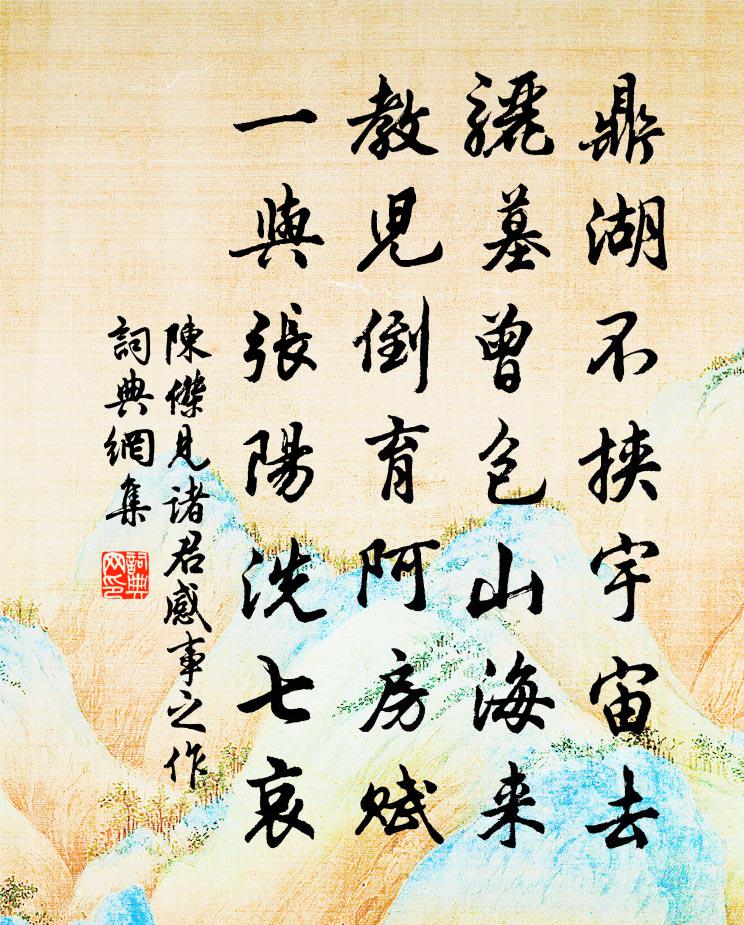 鼎湖不挾宇宙去
驪墓曾包山海来
教兒倒育阿房賦
一與張陽洗七哀
陳傑見諸君感事之作
詞典網集
詞典网印